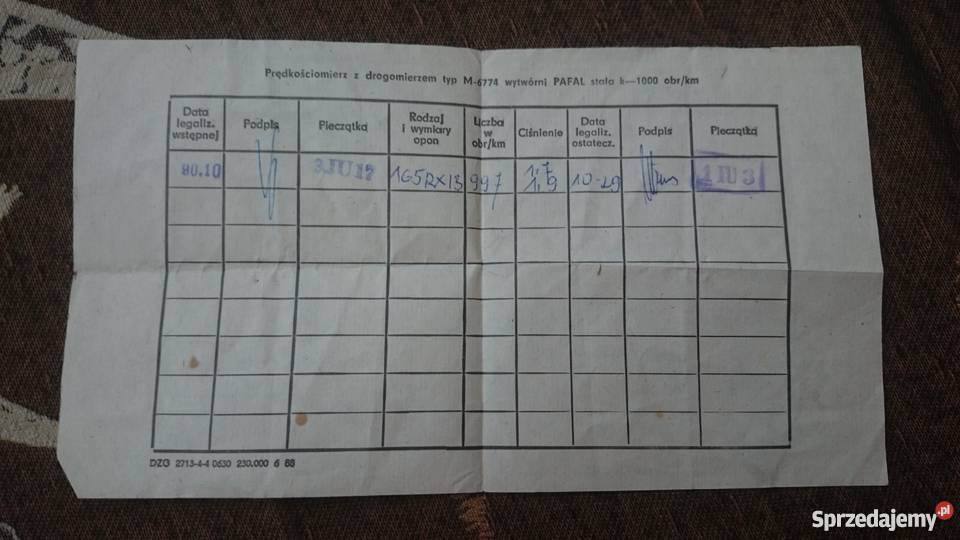 Prędkościomierz z drogomierzem typ M-6774 wytwórni PAFAL stała k—1000 obr/km
Data legaliz. wstępnej Podpis Pieczątka Rodzaj i wymiary opon Liczba w obr/km Ciśnienie Data legaliz. ostatecz. Podpis Pieczątka
80.10 3JU17 165RX13 997 1,7 1,9 10-29 1 IU 3
DZG 2713-4-4 0630 250.000 6 88
Sprzedajemy.pl